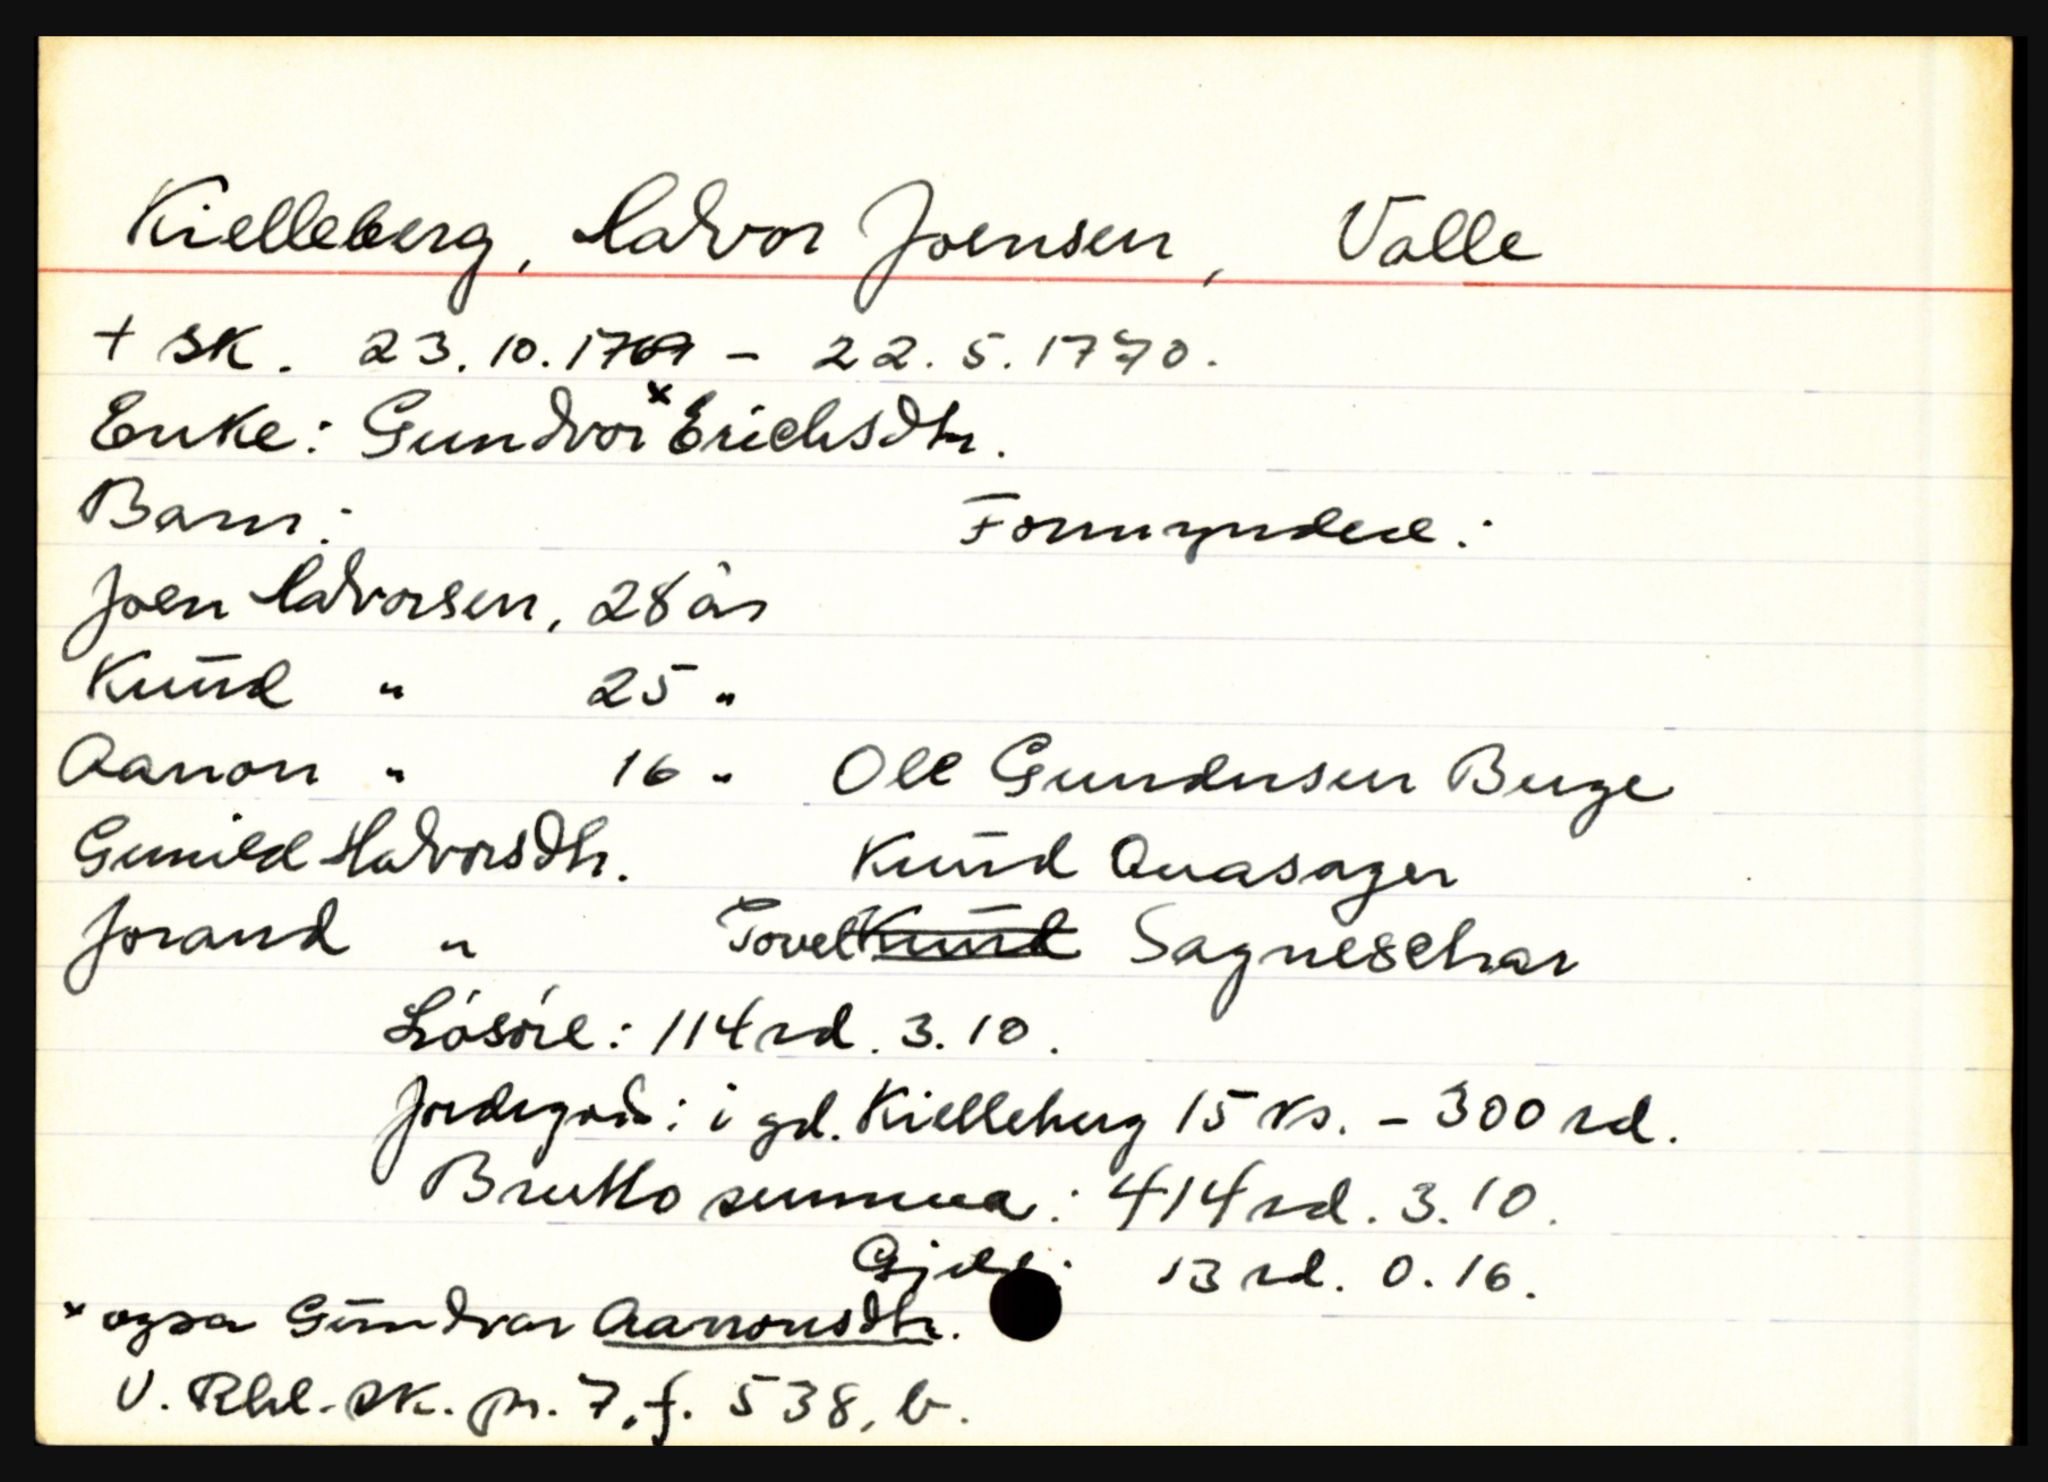 Kielleberg, Halvor Joensen, Valle
+ sk. 23.10.1769 – 22.5.1770.
Enke: Gundvor ˣ Erichsdtr.
Barn: Formyndere:
Joen Halvorsen, 28 år
Knud " 25 "
Aanon " 16 " Ole Gundersen Berge
Gunild Halvorsdtr. Knud Aaasager
Jorand " Tovel Knud Sagneschar
Lósóre: 114 rd. 3. 10.
Jordegods: i gd. Kielleberg 15 ks. – 300 rd.
Brutto summa: 414 rd. 3. 10.
Gjeld: 13 rd. 0. 16.
ˣ også Gundvor Aanonsdtr.
V. Rbl. sk. pr. 7, f. 538, b.